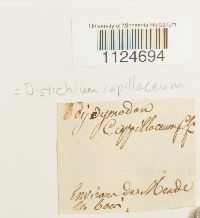 University of Minnesota Herbarium
1124694
= Distichium capillaceum
Didymodon
Capillaceum
Environ de Mende